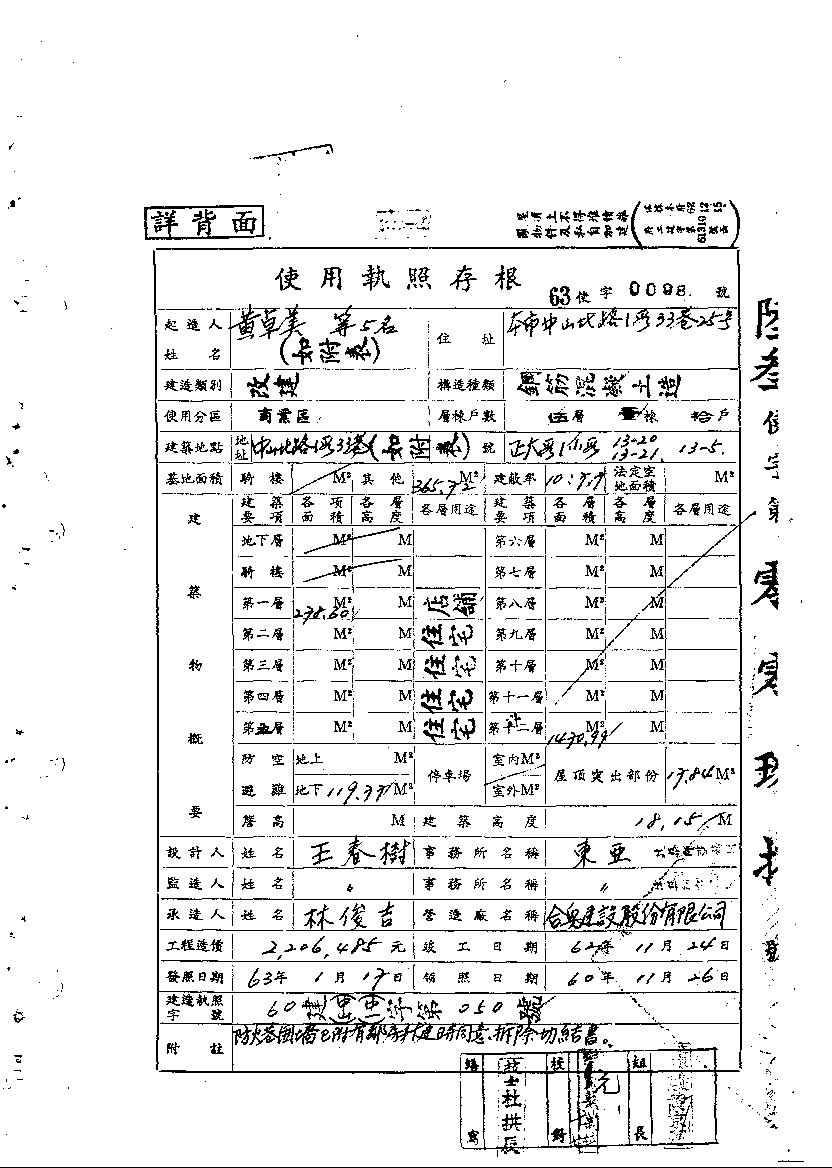 詳背面
使用執照存根
63使字0098號
起造人姓名 黃卓美 等5名(如附表) 住址 本市中山北路1段33巷25号
建造類別 改建 構造種類 鋼筋混凝土造
使用分區 商業區 層棟戶數 伍層壹棟拾戶
建築地點 地址 中山北路1段33巷(如附表)號 正大段1小段 13-20 13-21. 13-5.
基地面積 騎樓 M² 其他 365.92 M² 建蔽率 法定空地面積 M²
建築物概要 建築要項 各項面積 各層高度 各層用途 建築要項 各層面積 各層高度 各層用途
地下層 M² M 第六層 M² M
騎樓 M² M 第七層 M² M
第一層 238.60 M² M 店舖 第八層 M² M
第二層 M² M 住宅 第九層 M² M
第三層 M² M 住宅 第十層 M² M
第四層 M² M 住宅 第十一層 M² M
第五層 M² M 住宅 第十二層 1430.99 M² M
防空避難 地上 M² 停車場 室內M² 屋頂突出部份 13.84 M²
地下 119.33 M² 室外M²
簷高 M 建築高度 18.15 M
設計人 姓名 王春樹 事務所名稱 東亞
監造人 姓名 〃 事務所名稱 〃
承造人 姓名 林俊吉 營造廠名稱 建設股份有限公司
工程造價 2,206,485元 竣工日期 62年11月24日
發照日期 63年1月17日 領照日期 60年11月26日
建造執照字號 60建(中)(中)字第050號
附註
繕寫 技士杜拱辰 校對 組長